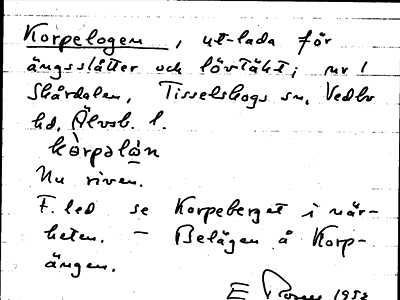 Korpelogen, ut-lada för
ängsslåtter och lövtäkt i nr 1
Skårdalen, Tisselskogs sn, Vedbo
hd, Älvsb. l.
kårpəlån
Nu riven.
F. led se Korpeberget i när-
heten. – Belägen å Korp-
ängen.
E 1952